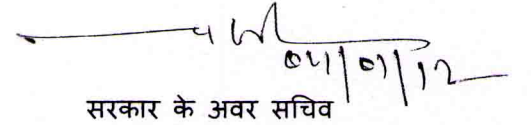 04/01/12
सरकार के अवर सचिव